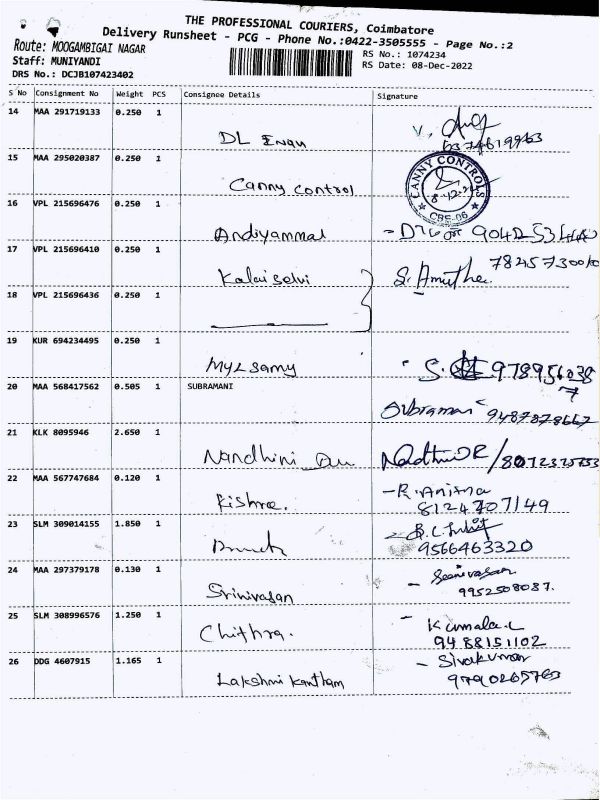 THE PROFESSIONAL COURIERS, Coimbatore
Delivery Runsheet - PCG - Phone No.:0422-3505555 - Page No.:2
Route: MOOGAMBIGAI NAGAR
RS No.: 1074234
Staff: MUNIYANDI
RS Date: 08-Dec-2022
DRS No.: DCJB107423402
S No Consignment No Weight PCS Consignee Details Signature
14 MAA 291719133 0.250 1
DL
15 MAA 295020387 0.250 1
Canny Control
CANNY CONTROLS
CBE-06
16 VPL 215696476 0.250 1
Andiyammal
17 VPL 215696410 0.250 1
Kalaiselvi S. Amutha
18 VPL 215696436 0.250 1
19 KUR 694234495 0.250 1
Mylsamy S.
20 MAA 568417562 0.505 1 SUBRAMANI
Subramani 9487878667
21 KLK 8095946 2.650 1
Nandhini
22 MAA 567747684 0.120 1
Kishre. - R. Anitha
8124707149
23 SLM 309014155 1.850 1
9566463320
24 MAA 297379178 0.130 1
Srinivasan - Seenivasan
9952508087.
25 SLM 308996576 1.250 1
Chithra. - Kamala.C
9488151102
26 DDG 4607915 1.165 1
Lakshmi Kantham - Sivakumar
9790265763